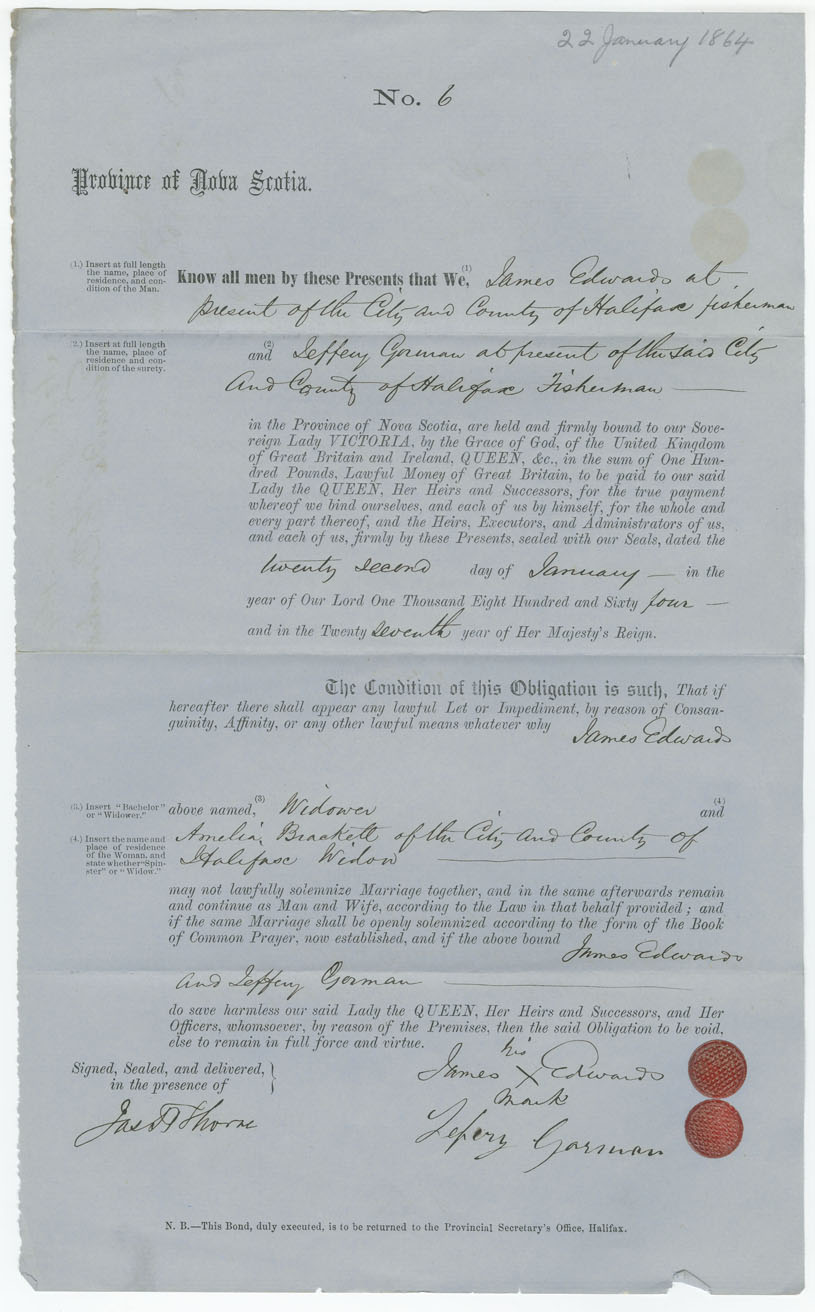 22 January 1864
No. 6
Province of Nova Scotia.
(1.) Insert at full length
the name, place of
residence, and con-
dition of the Man.
Know all men by these Presents that We, (1) James Edwards at
present of the City and County of Halifax fisherman
(2.) Insert at full length
the name, place of
residence and con-
dition of the surety.
(2)
and Jeffery Gorman at present of the said City
And County of Halifax Fisherman
in the Province of Nova Scotia, are held and firmly bound to our Sove-
reign Lady VICTORIA, by the Grace of God, of the United Kingdom
of Great Britain and Ireland, QUEEN, &c., in the sum of One Hun-
dred Pounds, Lawful Money of Great Britain, to be paid to our said
Lady the QUEEN, Her Heirs and Successors, for the true payment
whereof we bind ourselves, and each of us by himself, for the whole and
every part thereof, and the Heirs, Executors, and Administrators of us,
and each of us, firmly by these Presents, sealed with our Seals, dated the
twenty second day of January — in the
year of Our Lord One Thousand Eight Hundred and Sixty four —
and in the Twenty seventh year of Her Majesty's Reign.
The Condition of this Obligation is such, That if
hereafter there shall appear any lawful Let or Impediment, by reason of Consan-
guinity, Affinity, or any other lawful means whatever why
James Edwards
(3.) Insert "Bachelor"
or "Widower."
above named, (3) Widower (4) and
(4.) Insert the name and
place of residence
of the Woman, and
state whether "Spin-
ster" or "Widow."
Amelia Brackett of the City and County of
Halifax Widow
may not lawfully solemnize Marriage together, and in the same afterwards remain
and continue as Man and Wife, according to the Law in that behalf provided ; and
if the same Marriage shall be openly solemnized according to the form of the Book
of Common Prayer, now established, and if the above bound
James Edwards
and Jeffery Gorman
do save harmless our said Lady the QUEEN, Her Heirs and Successors, and Her
Officers, whomsoever, by reason of the Premises, then the said Obligation to be void,
else to remain in full force and virtue.
Signed, Sealed, and delivered, }
in the presence of
his
James X Edwards
mark
Jas Thorne
Jefery Gorman
N. B.—This Bond, duly executed, is to be returned to the Provincial Secretary's Office, Halifax.